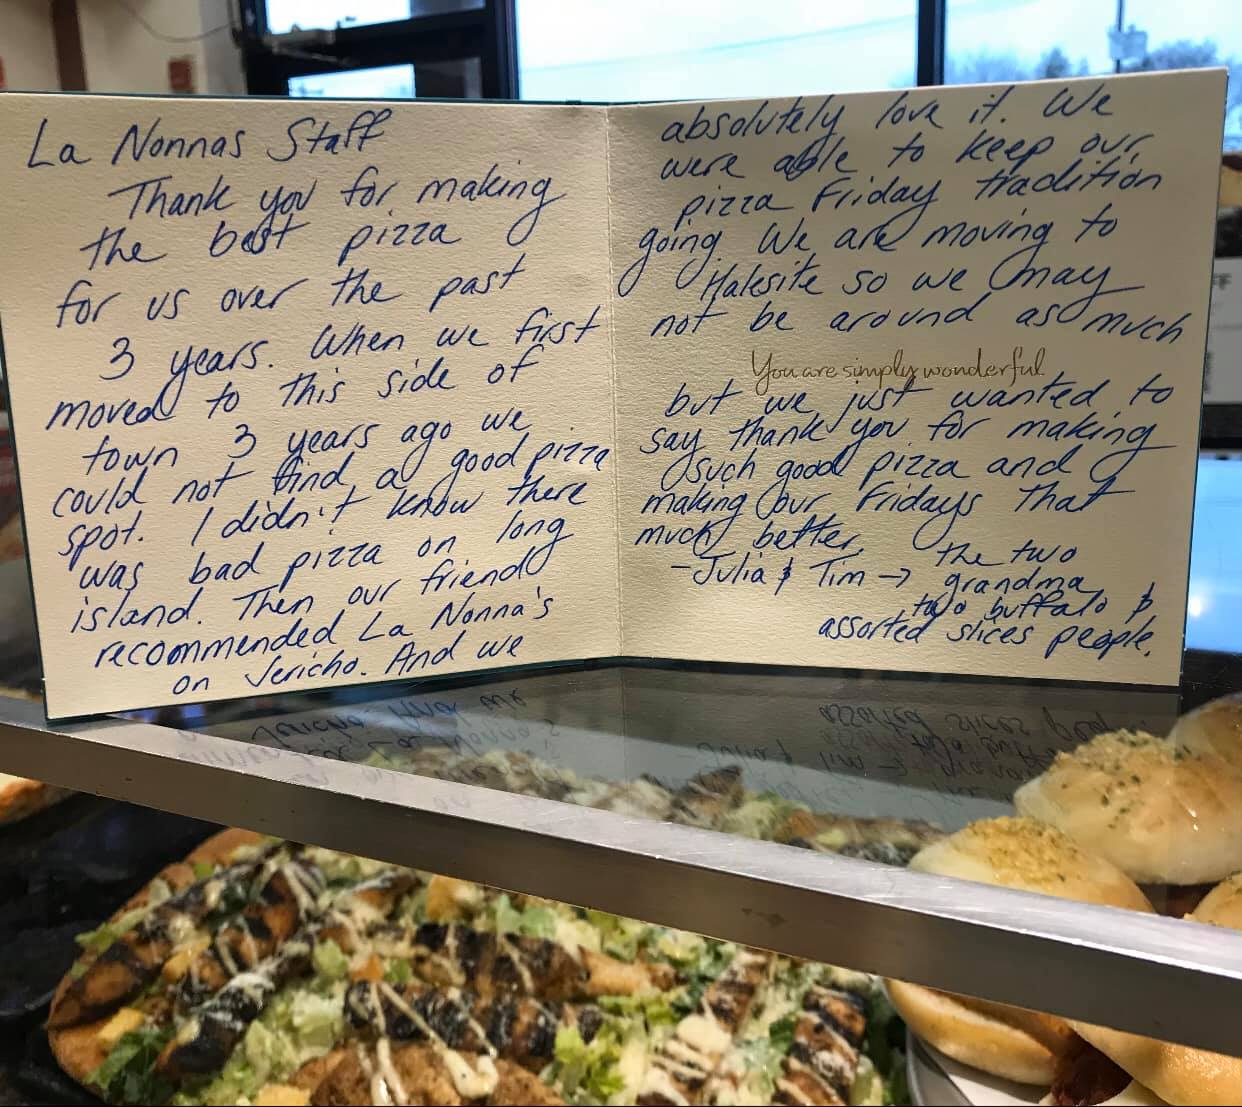 La Nonnas Staff
Thank you for making
the best pizza
for us over the past
3 years. When we first
moved to this side of
town 3 years ago we
could not find a good pizza
spot. I didn't know there
was bad pizza on long
island. Then our friend
recommended La Nonna's
on Jericho. And we
absolutely love it. We
were able to keep our
pizza Friday tradition
going. We are moving to
Halesite so we may
not be around as much
You are simply wonderful.
but we just wanted to
say thank you for making
such good pizza and
making our Fridays that
much better.
-Julia & Tim → the two
grandma
two buffalo &
assorted slices people.